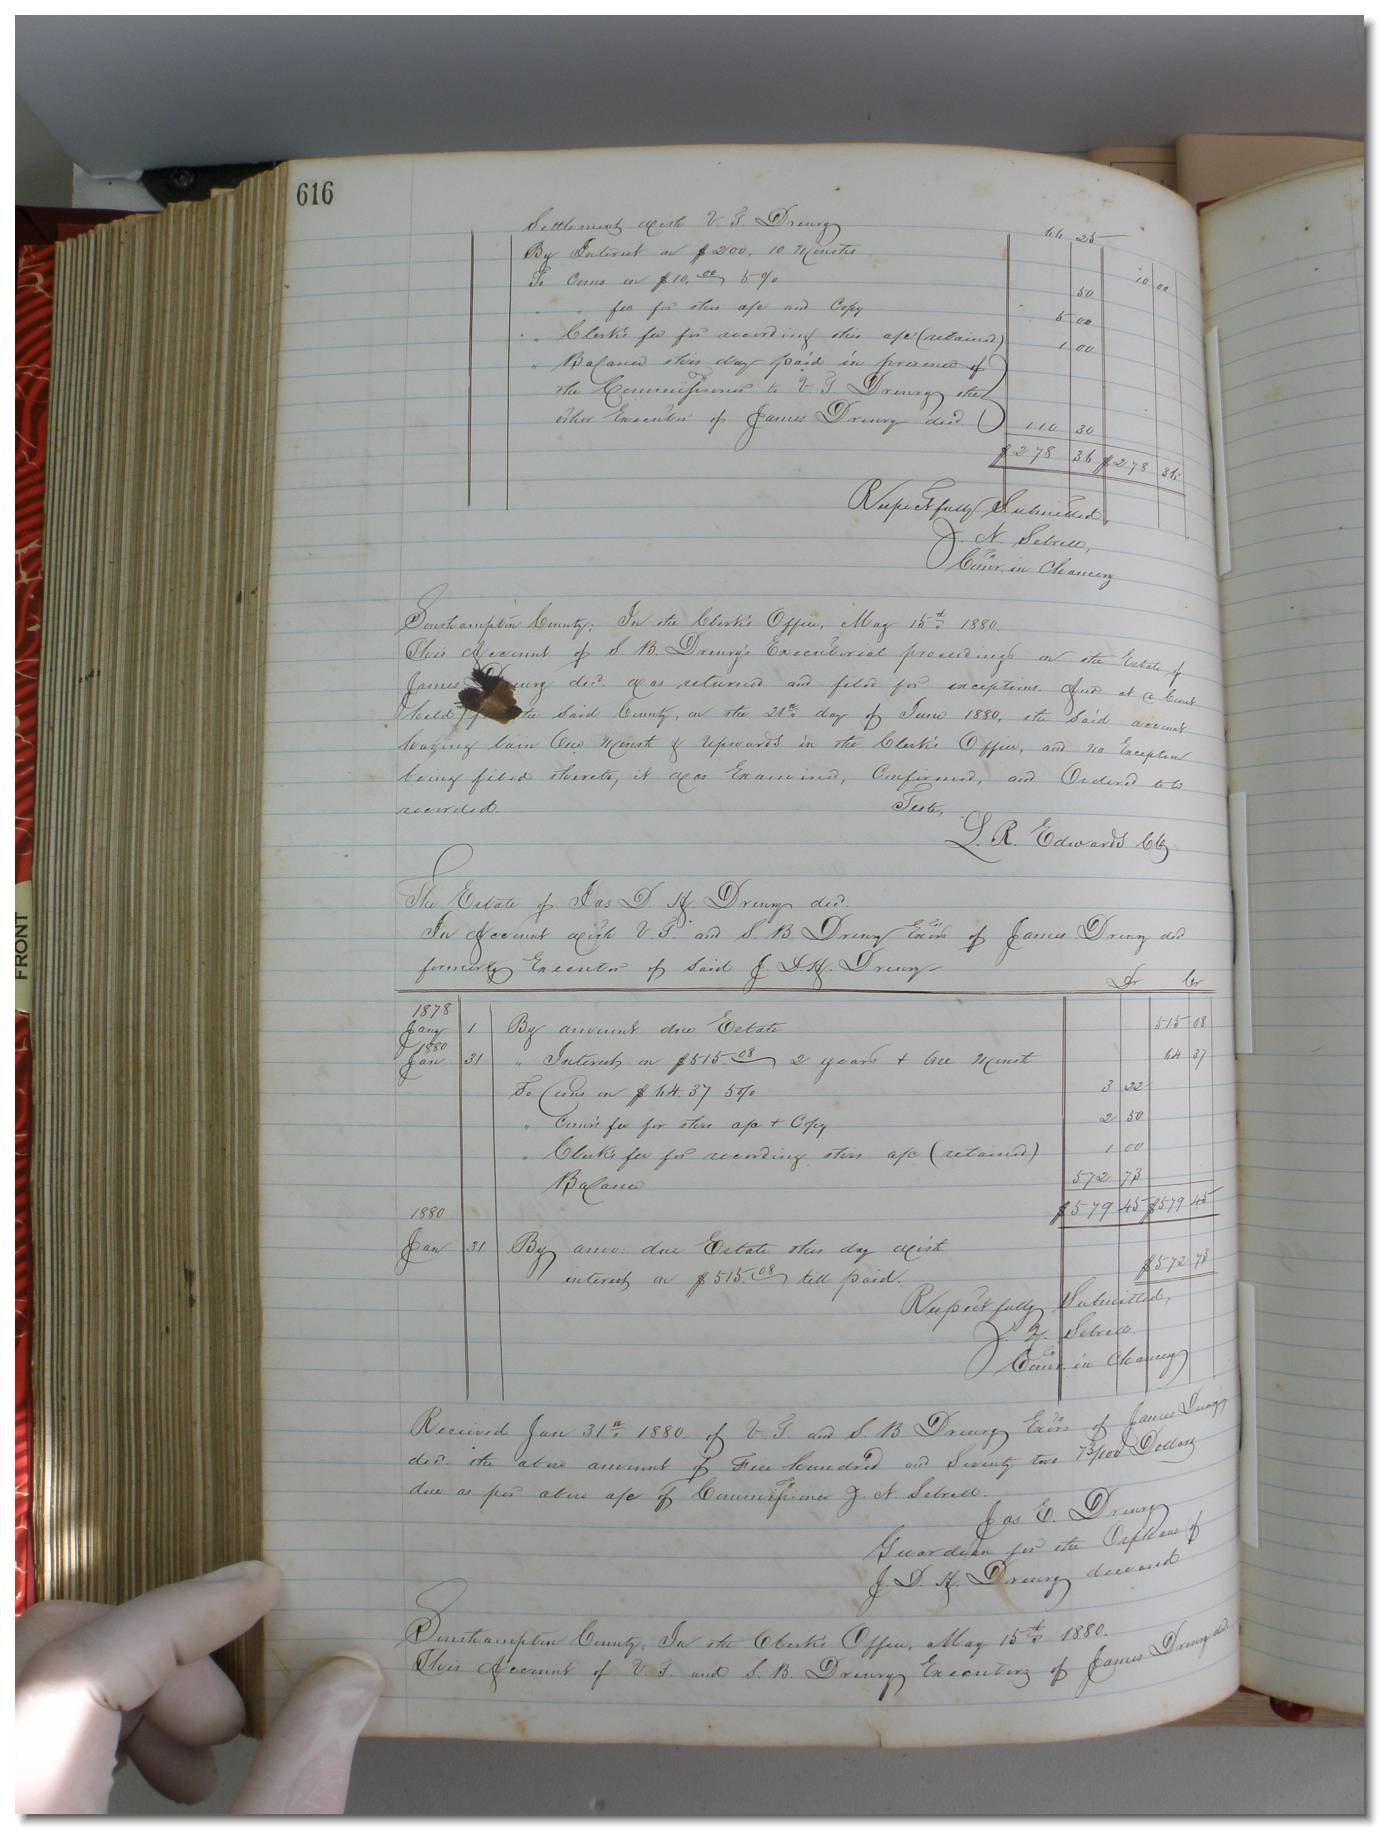 616
Settlement with V. T. Drewry 66 25
By Interest on $200. 10 Months 10 00
To Coms on $10.00 5% 50
" " fee for this a/c and Copy 5 00
" Clerk's fee for recording this a/c (retained) 1 00
" Balance this day paid in presence of
the Commissioner to V. T Drewry the
other Executor of James Drewry decd. 110 30
$278 36 $278 36
Respectfully Submitted
J. N. Sebrell,
Comr. in Chancery
Southampton County: In the Clerk's Office, May 15th 1880.
This Account of S. B. Drewry's Executorial proceedings on the Estate of
James Drewry decd. was returned and filed for exceptions. And at a Court
held for the said County, on the 21st day of June 1880, the said account
having lain One Month & Upwards in the Clerk's Office, and no Exception
being filed thereto, it was Examined, Confirmed, and Ordered to be
recorded. Teste,
L. R. Edwards Clk
The Estate of Jas D. H. Drewry decd.
In Account with V. T. and S. B. Drewry Exors of James Drewry decd
formerly Executor of said J. D. H. Drewry
Dr Cr
1878
Jany 1 By amount due Estate 515 08
1880
Jan 31 " Interest on $515.08 2 years + one Month 64 37
To Coms on $64.37 5% 3 22
" Comr's fee for this a/c + Copy 2 50
" Clerk's fee for recording this a/c (retained) 1 00
Balance 572 73
$579 45 $579 45
1880
Jan 31 By amo. due Estate this day with
interest on $515.08 till paid. $572 73
Respectfully Submitted,
J. N. Sebrell
Comr. in Chancery
Received Jan 31st 1880. of V. T. and S. B Drewry Exors of James Drewry
decd. the above amount of Five hundred and Seventy two 73/100 Dollars
due as per above a/c of Commissioner J. N. Sebrell.
Jas E. Drewry
Guardian for the Orphans of
J. D. H. Drewry deceased
Southampton County, In the Clerk's Office, May 15th 1880.
This Account of V. T. and S. B. Drewry Executors of James Drewry decd.
FRONT